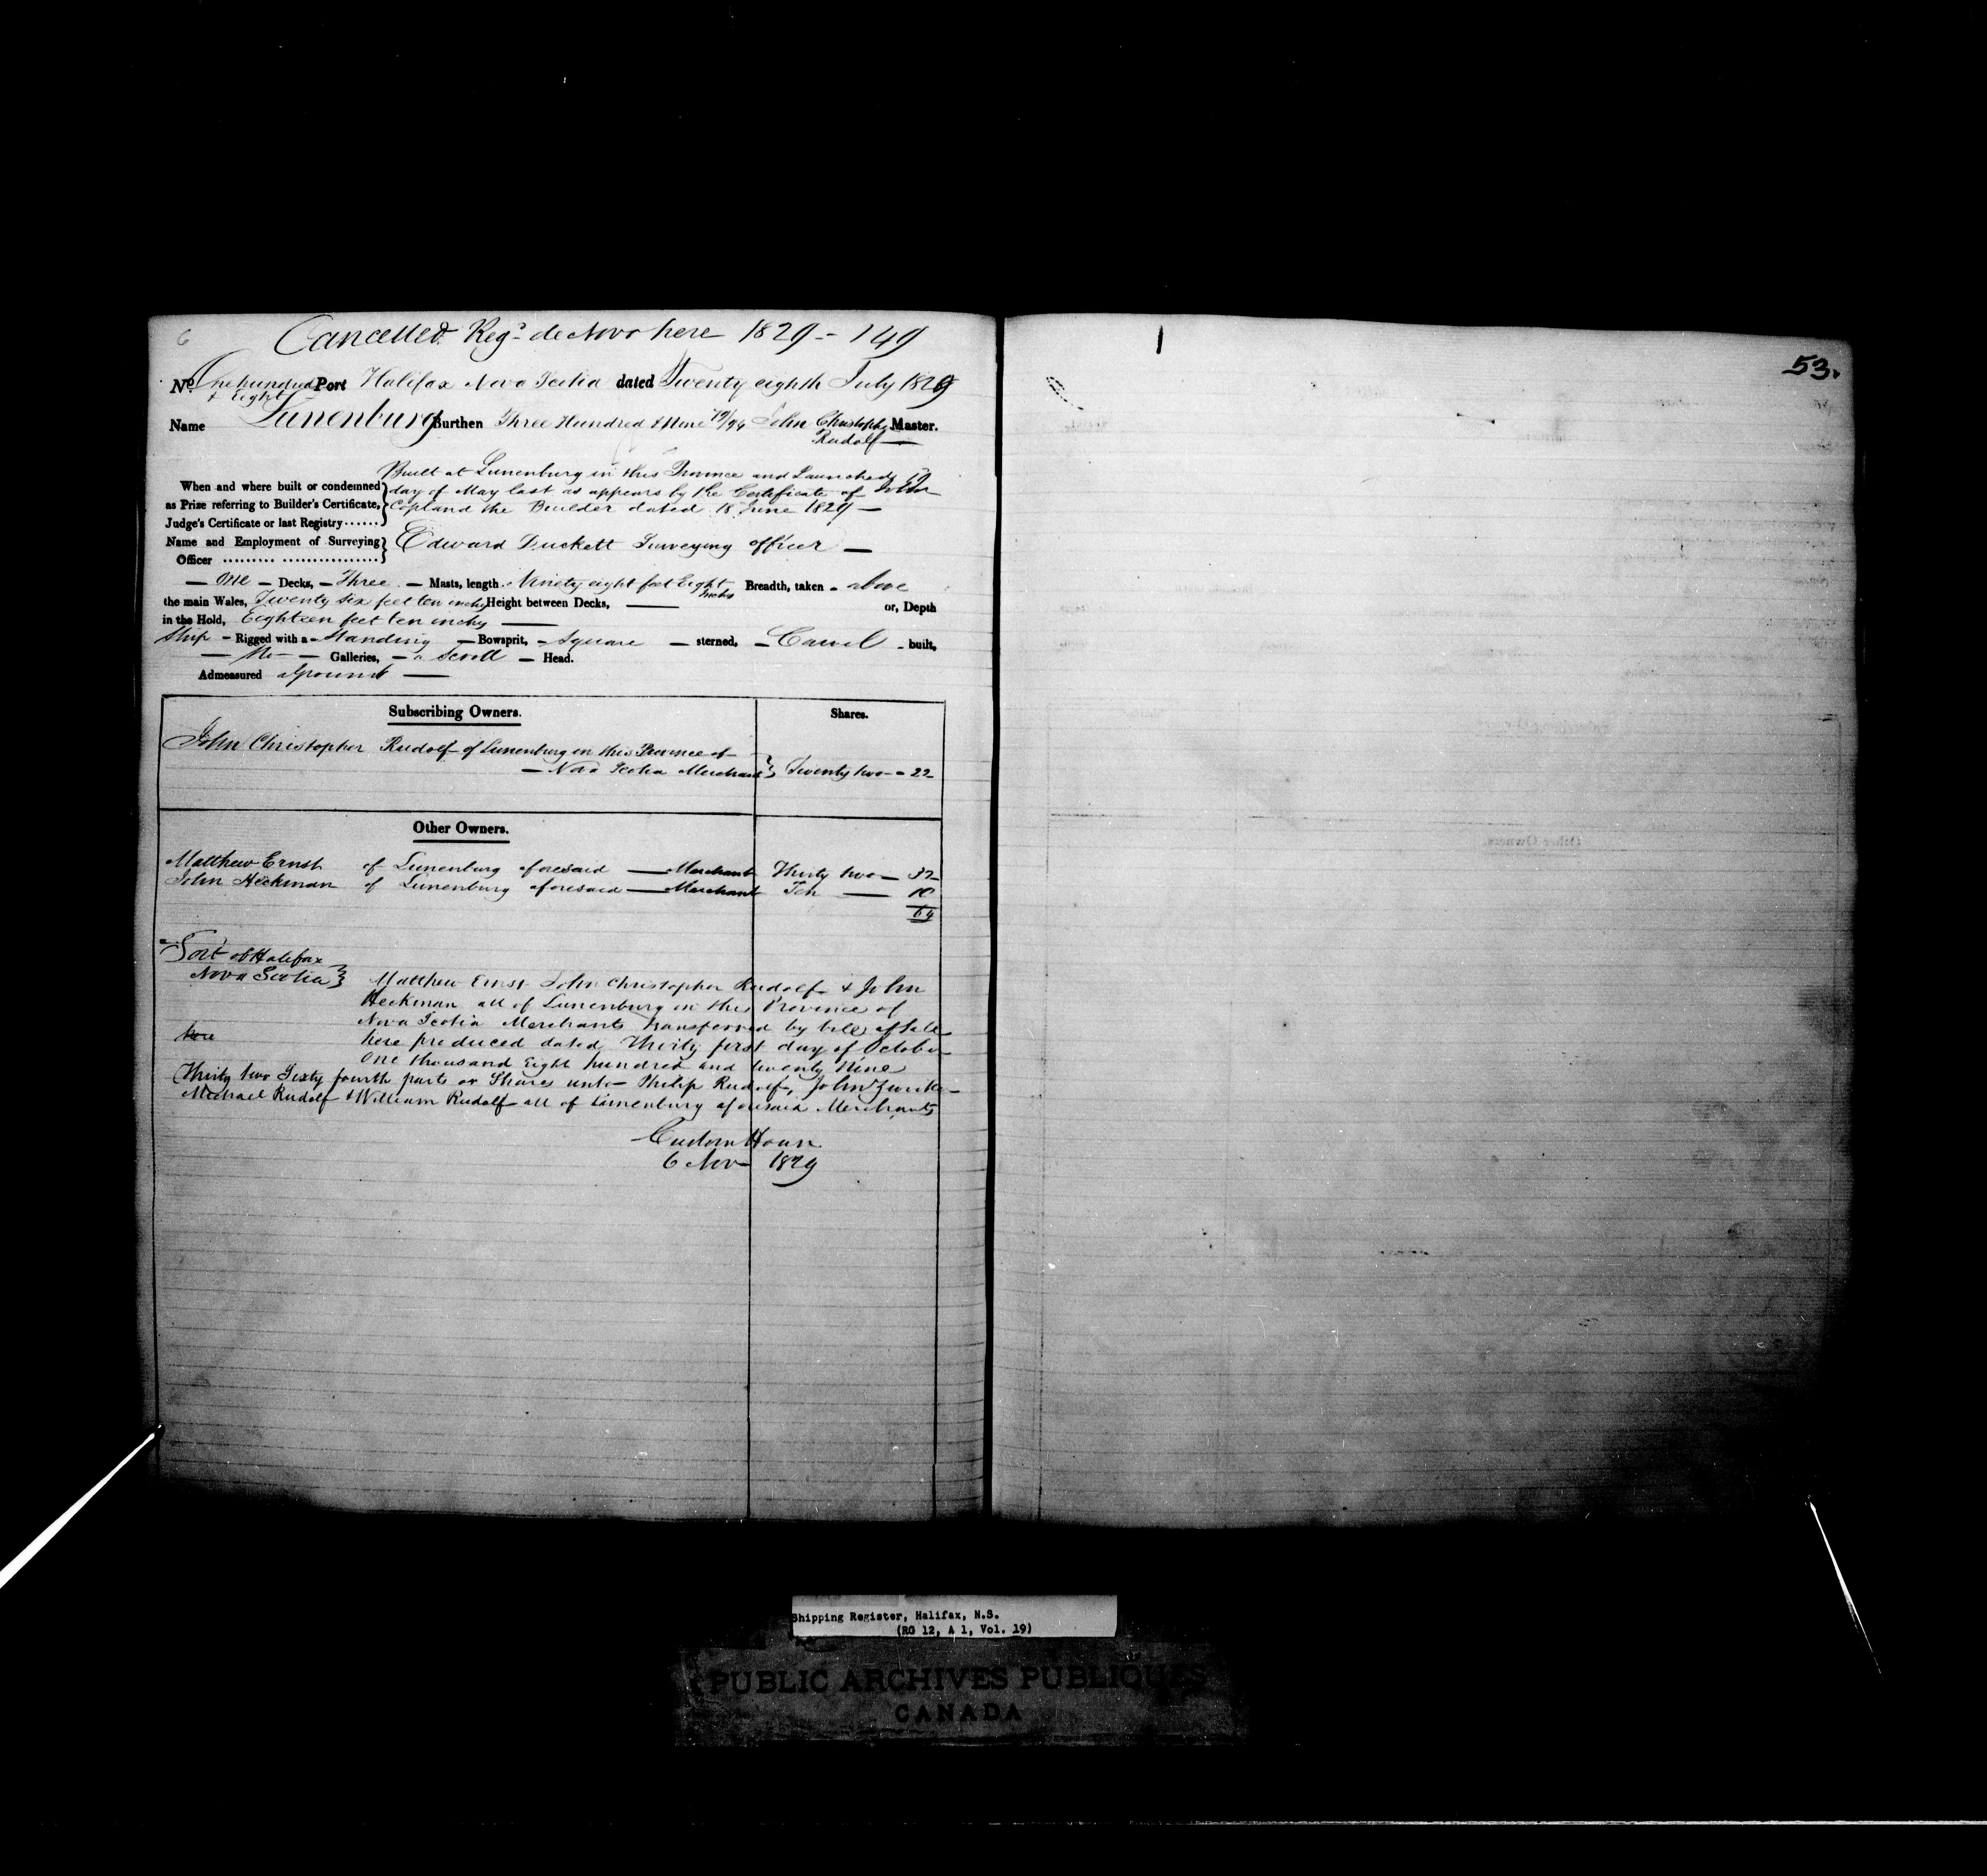 6
Cancelled Regd de Novo here 1829 - 149
53.
No. One hundred & Eight Port Halifax Nova Scotia dated Twenty eighth July 1829
Name Lunenburg Burthen Three Hundred & Nine 79/94 John Christopher Rudolf Master.
Built at Lunenburg in this Province and Launched
When and where built or condemned day of May last as appears by the Certificate of John
as Prize referring to Builder's Certificate, Copland the Builder dated 18 June 1829 —
Judge's Certificate or last Registry ......
Name and Employment of Surveying Officer .................. Edward Duckett Surveying officer —
— One — Decks, — Three — Masts, length Ninety eight feet Eight Inches Breadth, taken - above
the main Wales, Twenty six feet ten inchs Height between Decks, — or, Depth
in the Hold, Eighteen feet ten inchs —
Ship - Rigged with a - Standing — Bowsprit, - Square — sterned, - Carvel - built,
— No — Galleries, — a Scroll — Head.
Admeasured aground —
Subscribing Owners. Shares.
John Christopher Rudolf of Lunenburg in this Province of
— Nova Scotia Merchant } Twenty two — 22
Other Owners.
Matthew Ernst of Lunenburg aforesaid — Merchant Thirty two — 32
John Heckman of Lunenburg aforesaid — Merchant Ten — 10
64
Port of Halifax
Nova Scotia } Matthew Ernst John Christopher Rudolf & John
Heckman all of Lunenburg in this Province of
Nova Scotia Merchants transferred by bill of Sale
here here produced dated Thirty first day of October
One thousand Eight hundred and twenty Nine
Thirty two Sixty fourth parts or Shares unto Philip Rudolf, John Zwicker
Michael Rudolf & William Rudolf all of Lunenburg aforesaid Merchants
Custom House
6 Nov 1829
Shipping Register, Halifax, N.S.
(RG 12, A 1, Vol. 19)
PUBLIC ARCHIVES PUBLIQUES
CANADA